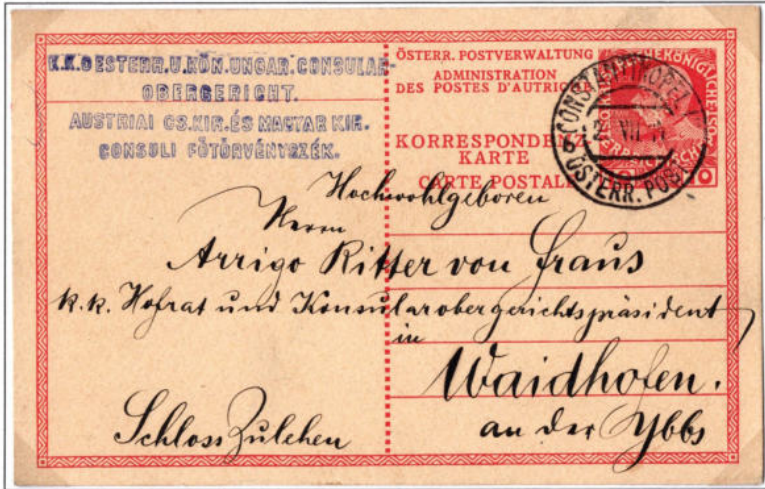 K.K.OESTERR.U.KÖN.UNGAR.CONSULAR-
OBERGERICHT.
AUSTRIAI CS.KIR.ÉS MAGYAR KIR.
CONSULI FÖTÖRVÉNYSZÉK.
ÖSTERR. POSTVERWALTUNG
ADMINISTRATION
DES POSTES D'AUTRICHE
KORRESPONDENZ-
KARTE
CARTE POSTALE
CONSTANTINOPEL I
VII
ÖSTERR. POST
10
Hochwohlgeboren
Herrn
Arrigo Ritter von Fraus
k.k. Hofrat und Konsularobergerichtspräsident
in
Waidhofen.
an der Ybbs
Schloss Zulehen